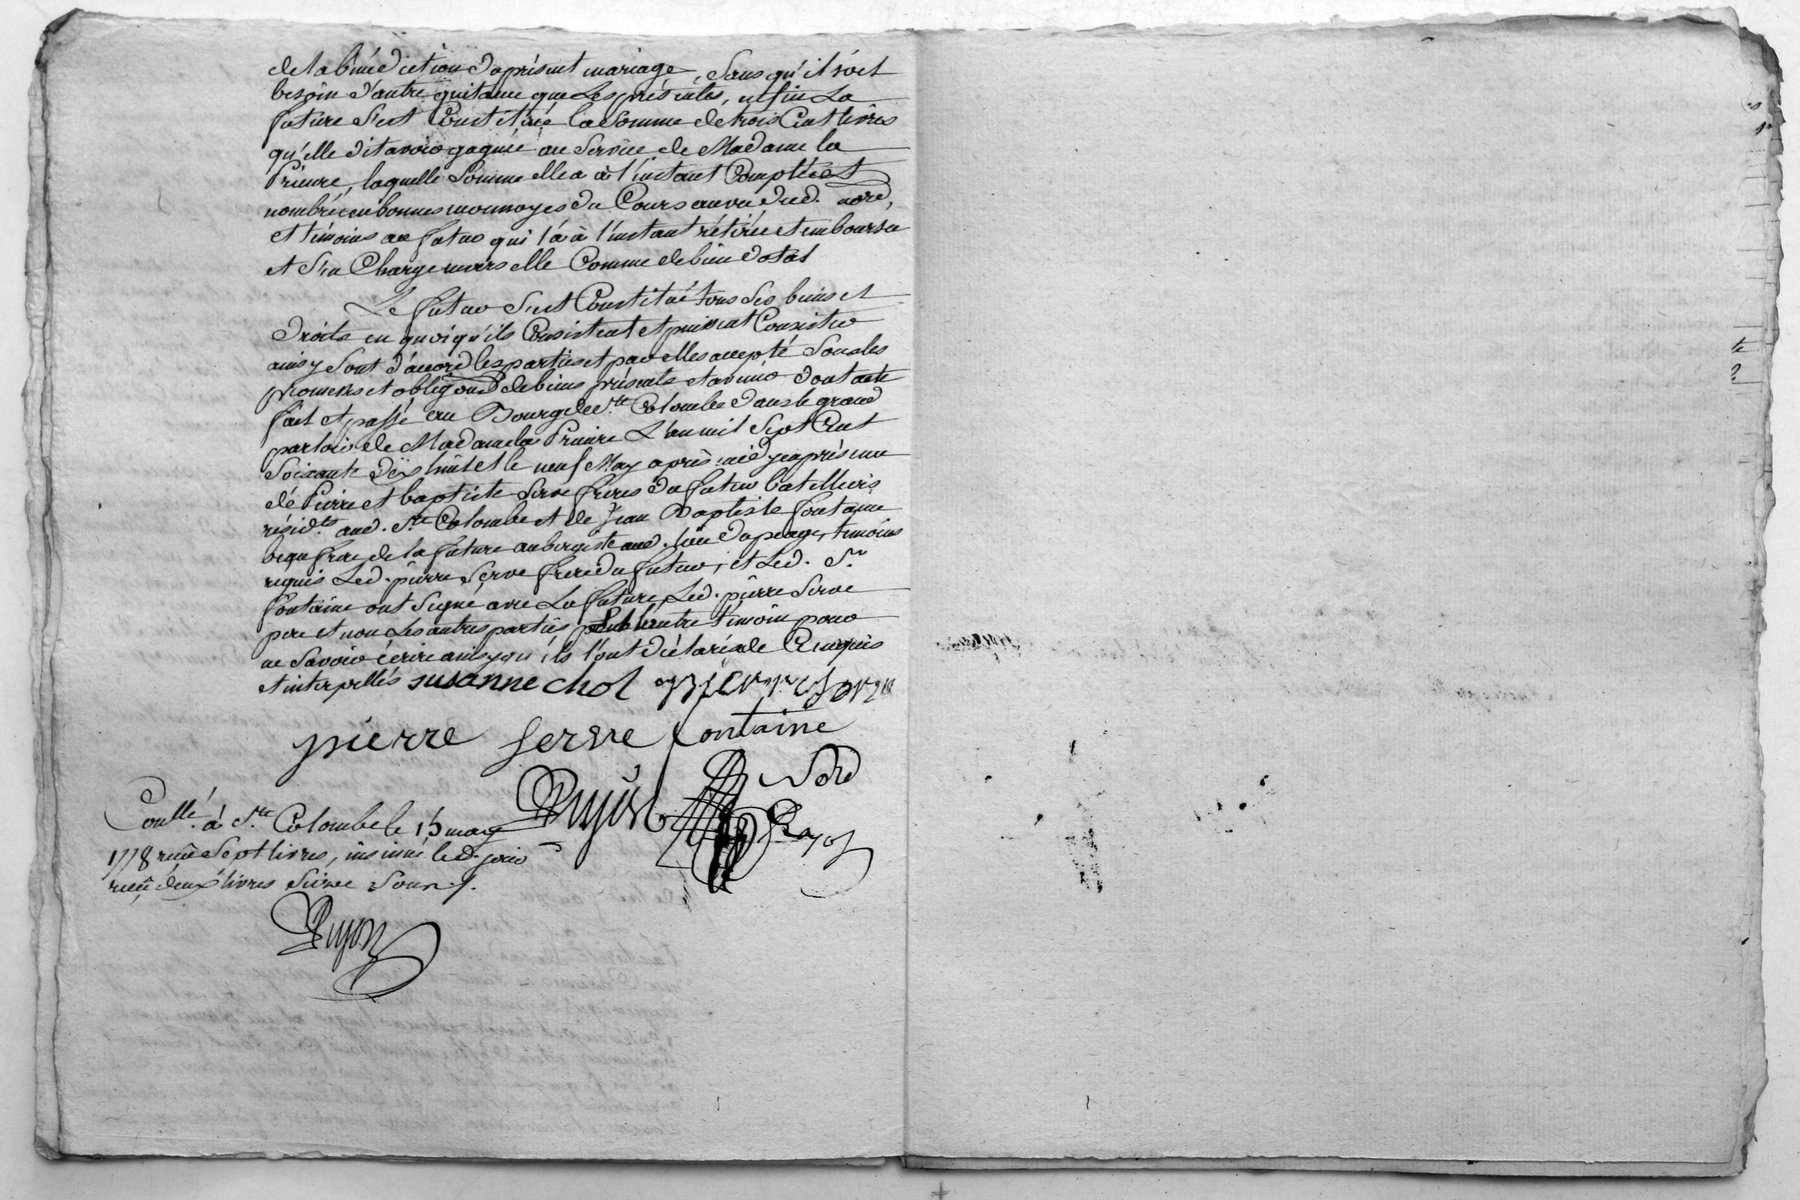 de la bénédiction du présent mariage, sans qu'il soit
besoin d'autre quitance que les présentes, enfin la
future s'est constituée la somme de trois cent livres
qu'elle dit avoir gagnée au service de Madame la
Prieure, laquelle somme elle a à l'instant comptée et
nombrée en bonnes monnoyes du cours au vu dud. nore,
et témoins au futur qui l'a à l'instant rétirée et emboursée
et s'en charge envers elle comme de bien dotal
Le futur s'est constitué tous ses biens et
droits en quoi qu'ils consistent et puissent consister
ainsy sont d'accord les parties et par elles accepté sous les
promesses et obligons de biens présents et avenir dont acte
fait et passé au Bourg de Ste Colombe dans le grand
parloir de Madame la Prieure l'an mil sept cent
soixante dix huit et le neuf May après midy en présence
de Pierre et baptiste Serve frères du futur batelliers
résidts aud. Ste Colombe et de Jean Baptiste fontaine
beaufrère de la future aubergiste aud. lieu du péage, témoins
requis Led. pierre Serve frere du futur, et Led. Sr
fontaine ont signé avec La future Led. pierre Serve
pere et non Les autres parties et l'autre témoin pour
ne savoir écrire ainsy qu'ils l'ont déclaré de ce enquis
et interpellés susanne chol pierre serve
pierre serve fontaine
Noré
Royal
Pujon
Conllé à Ste Colombe le 15 may
1778 reçu Sept livres, insinué led. jour
reçu deux livres seize sous
Pujon